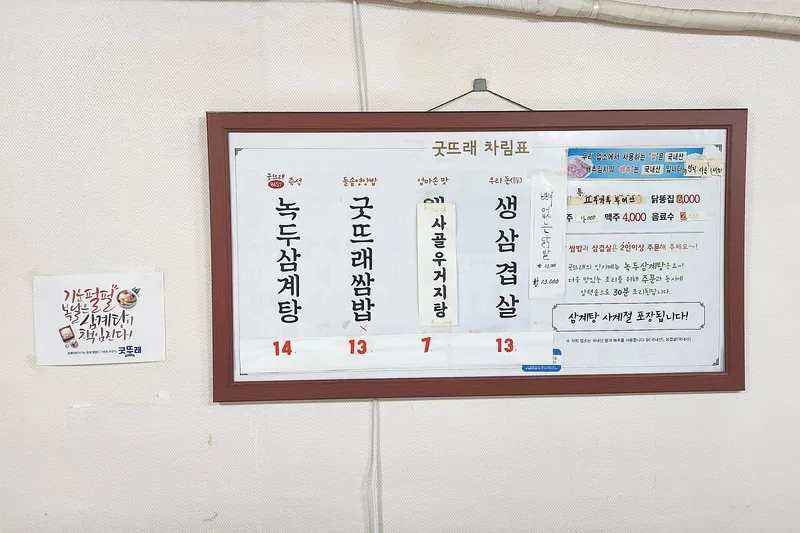 굿뜨래 차림표
굿뜨래 BEST 즉석
녹두삼계탕
14
돌솥영양밥
굿뜨래쌈밥
13
엄마손 맛
사골우거지탕
7
우리 돈(豚)
생삼겹살
13
뼈없는닭발
13,000
우리 업소에서 사용하는 "쌀"은 국내산
배추김치의 "배추"는 국내산 입니다
닭똥집 8,000
맥주 4,000 음료수
쌈밥과 삼겹살은 2인이상 주문해 주세요~!
굿뜨래의 인기메뉴 녹두삼계탕은요~!
더욱 맛있는 조리를 위해 주문과 동시에
압력솥으로 30분 조리됩니다.
삼계탕 사계절 포장됩니다!
기운펄펄
복날은
삼계탕이
책임진다!
굿뜨래